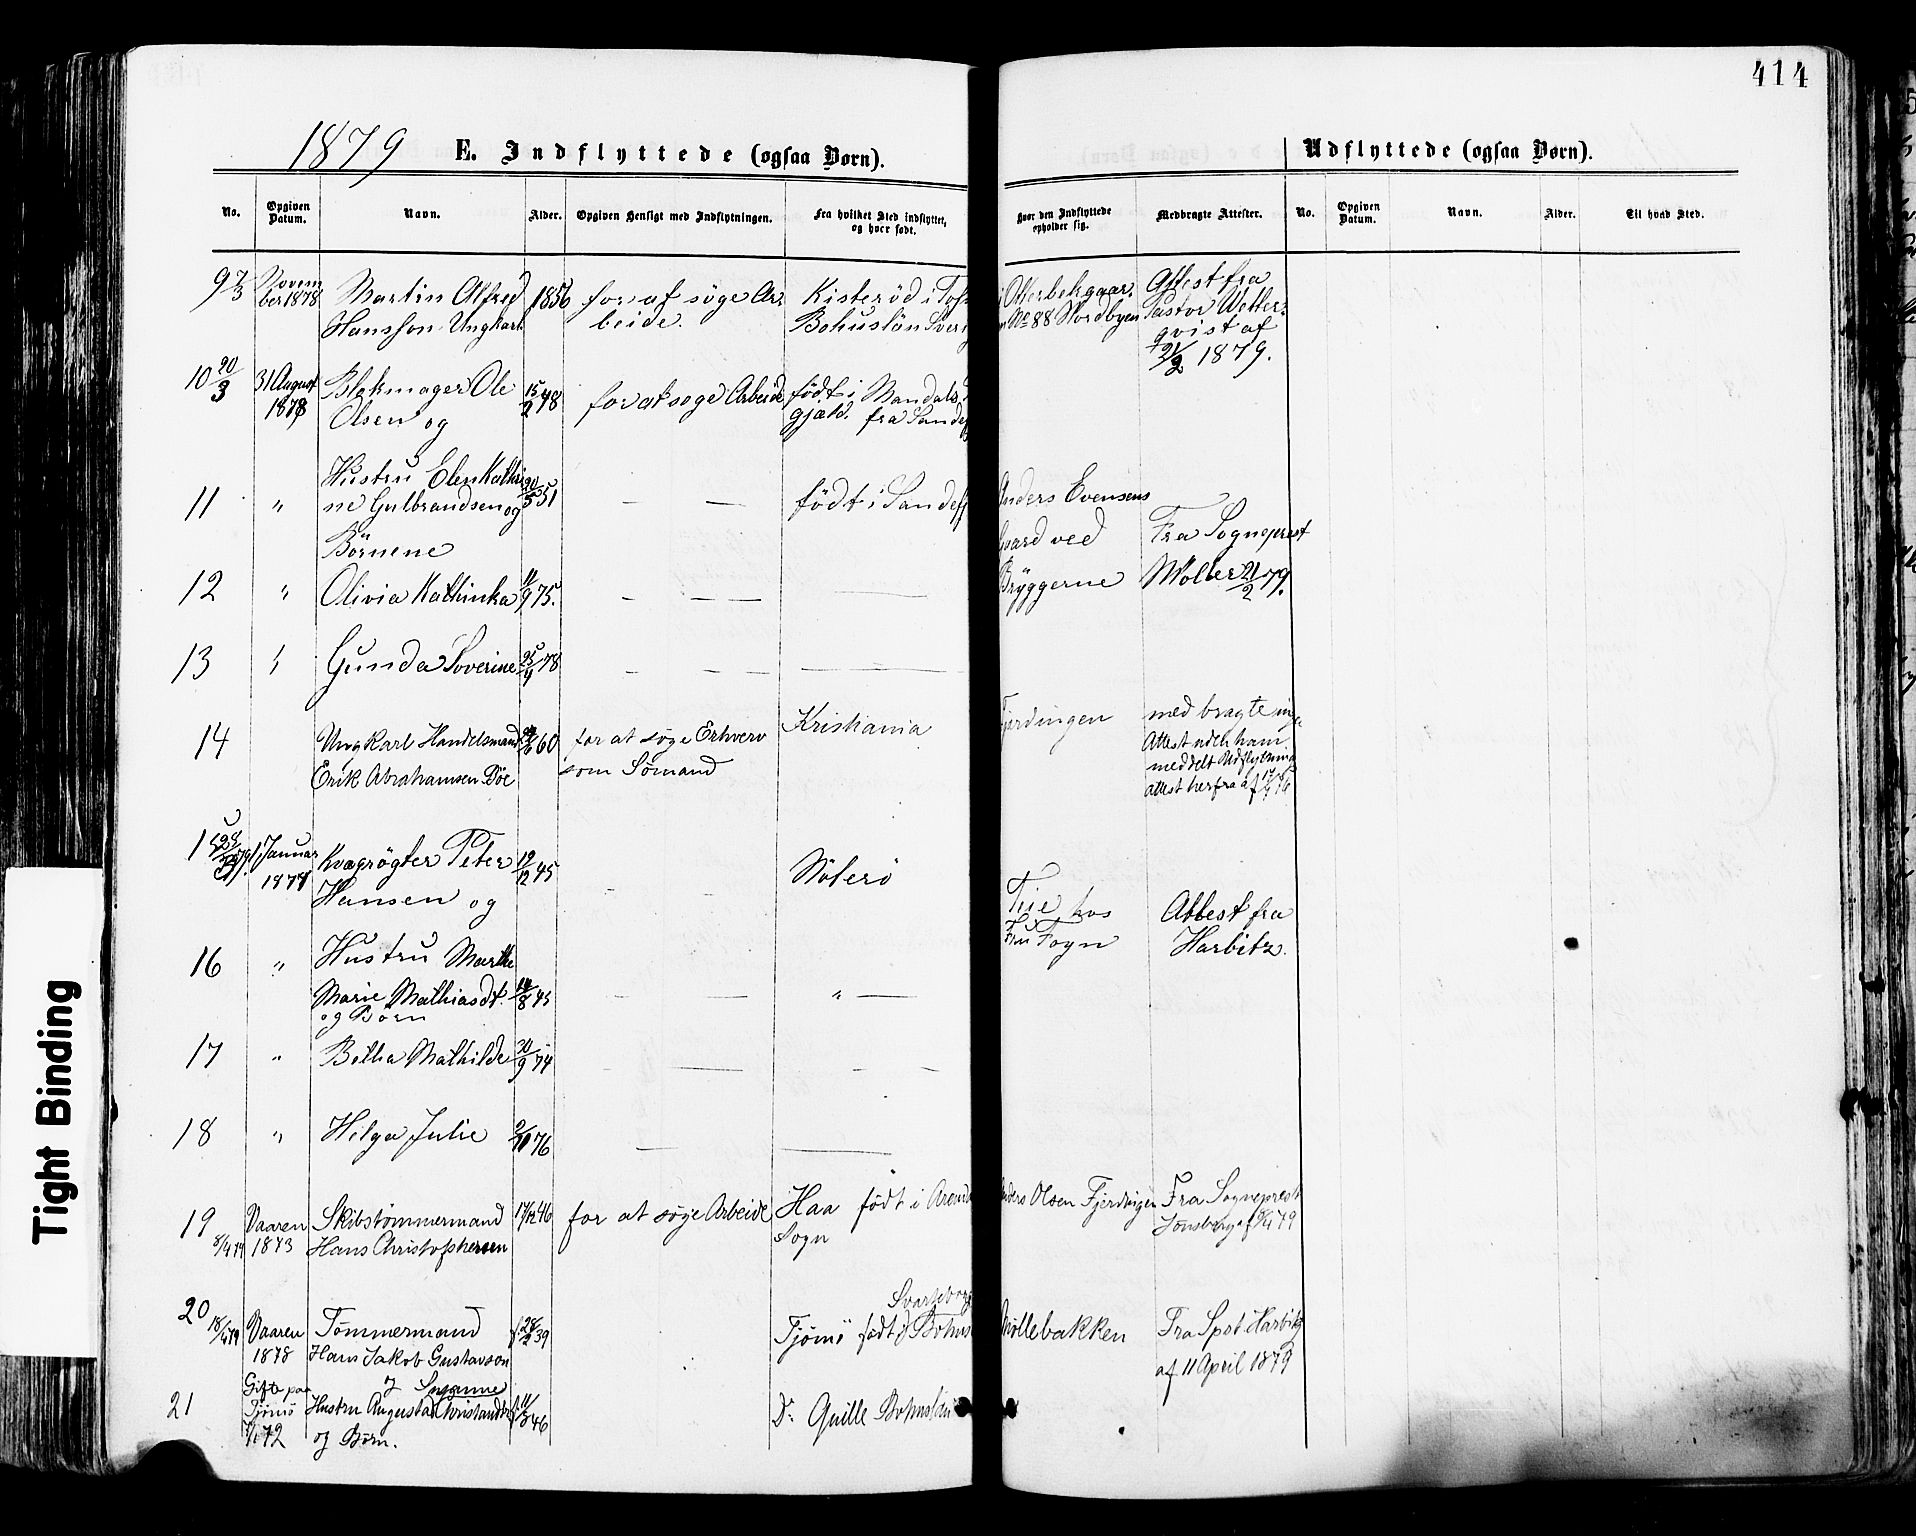 414
1879
E. Indflyttede (ogsaa Børn).
Udflyttede (ogsaa Børn).
No.
Opgiven Datum.
Navn.
Alder.
Opgiven Hensigt med Indflytningen.
Fra hvilket Sted indflyttet, og hvor født.
Hvor den Indflyttede opholder sig.
Medbragte Attester.
No.
Opgiven Datum.
Navn.
Alder.
Til hvad Sted.
9 7/3 Novem Martin Alfred 1856 for at søge Ar Kisterød i Attest fra
ber 1878 Hansson Ungkarl beide. Bohuslän No 88 Nordbyen Pastor Wetter
qvist af
1879.
10 20/3 31 August Blokmager Ole 15/2 48 for at søge Arbeide født i Mandals
1878 Olsen og gjæld. fra Sandef
11 " Hustru Elen Kathri 51 — — født i Sandefj Anders Evensens
ne Gulbrandsen og Gaard ved Fra Sogneprest
Børnene
12 " Olivia Kathinka 11/9 75. — — — Bryggerne 21/2 79.
13 " Gunda Soverine 78 — — —
14 Ungkarl Handelsmand 60 for at søge Erhverv Kristiania Fjerdingen medbragte
Erik Abrahamsen Bøe som Sømand Attest
meddelt Udflytnings
attest herfra af
15 1 Januar Kvægrøgter Peter 12/12 45 — — Nøterø
1879 Hansen og Teie hos Attest fra
Fru Fogn Harbitz.
16 " Hustru Marthe
Marie Mathiasdt. 14/8 45 — — " —
og Børn
17 " Betha Mathilde 30/9 74 — — — —
18 " Hilga Julie 76 — —
19 8/4 79 Vaaren Skibstømmermand 17/12 46 for at søge Arbeide Haa født i Arendal Anders Olsen Fjerdingen Fra Sogneprest
1873 Hans Christophersen Sogn Jonsberg af 8/4 79
20 18/4 79 Vaaren Tømmermand 39 Tjømø født i Svarteborg Bohus Møllebakken Fra Spst Harbitz
1878 Hans Jakob Gustavson af 11 April 1879
Gift paa og Susanne
21 Tjømø Hustru Augusta 46 Do Qville Bohuslän
72 og Børn.
Tight Binding